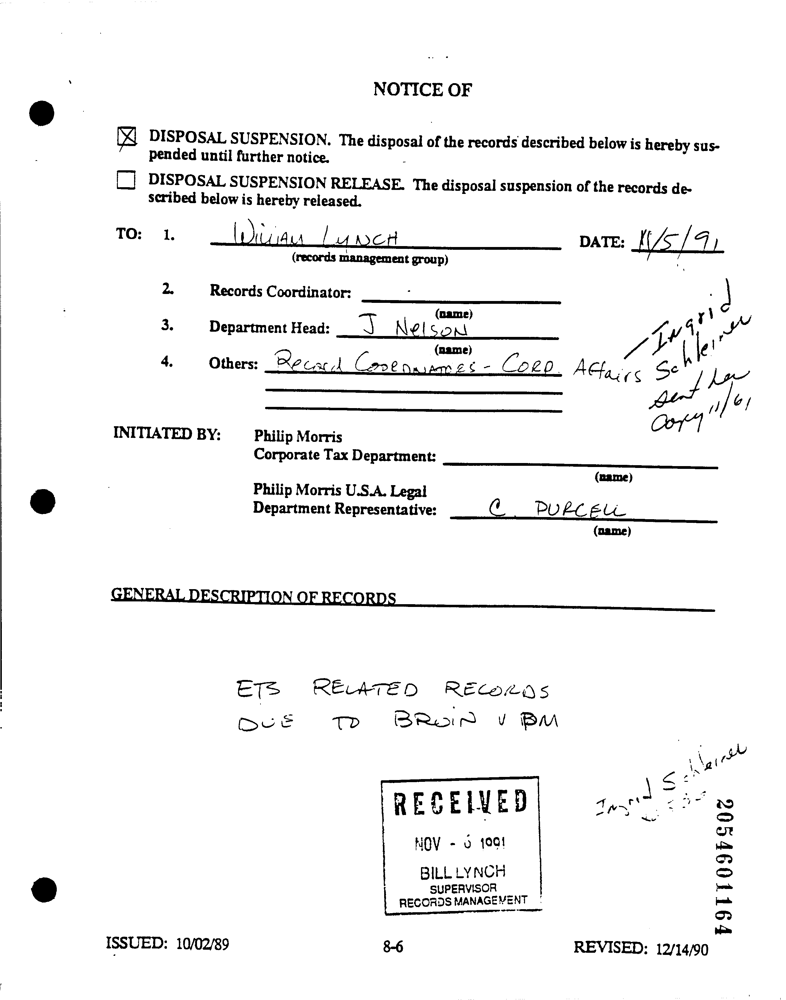 NOTICE OF
☒ DISPOSAL SUSPENSION. The disposal of the records described below is hereby sus-
pended until further notice.
☐ DISPOSAL SUSPENSION RELEASE. The disposal suspension of the records de-
scribed below is hereby released.
TO: 1. William Lynch DATE: 11/5/91
(records management group)
2. Records Coordinator:
(name)
3. Department Head: J Nelson
(name)
4. Others: Record Coordinators - Corp Affairs
— Ingrid
Schleiner
sent her
copy 11/61
INITIATED BY: Philip Morris
Corporate Tax Department:
(name)
Philip Morris U.S.A. Legal
Department Representative: C. PURCELL
(name)
GENERAL DESCRIPTION OF RECORDS
ETS RELATED RECORDS
DUE TO BROIN V PM
Ingrid Schleiner
RECEIVED
NOV - 6 1991
BILL LYNCH
SUPERVISOR
RECORDS MANAGEMENT
2054601164
ISSUED: 10/02/89 8-6 REVISED: 12/14/90